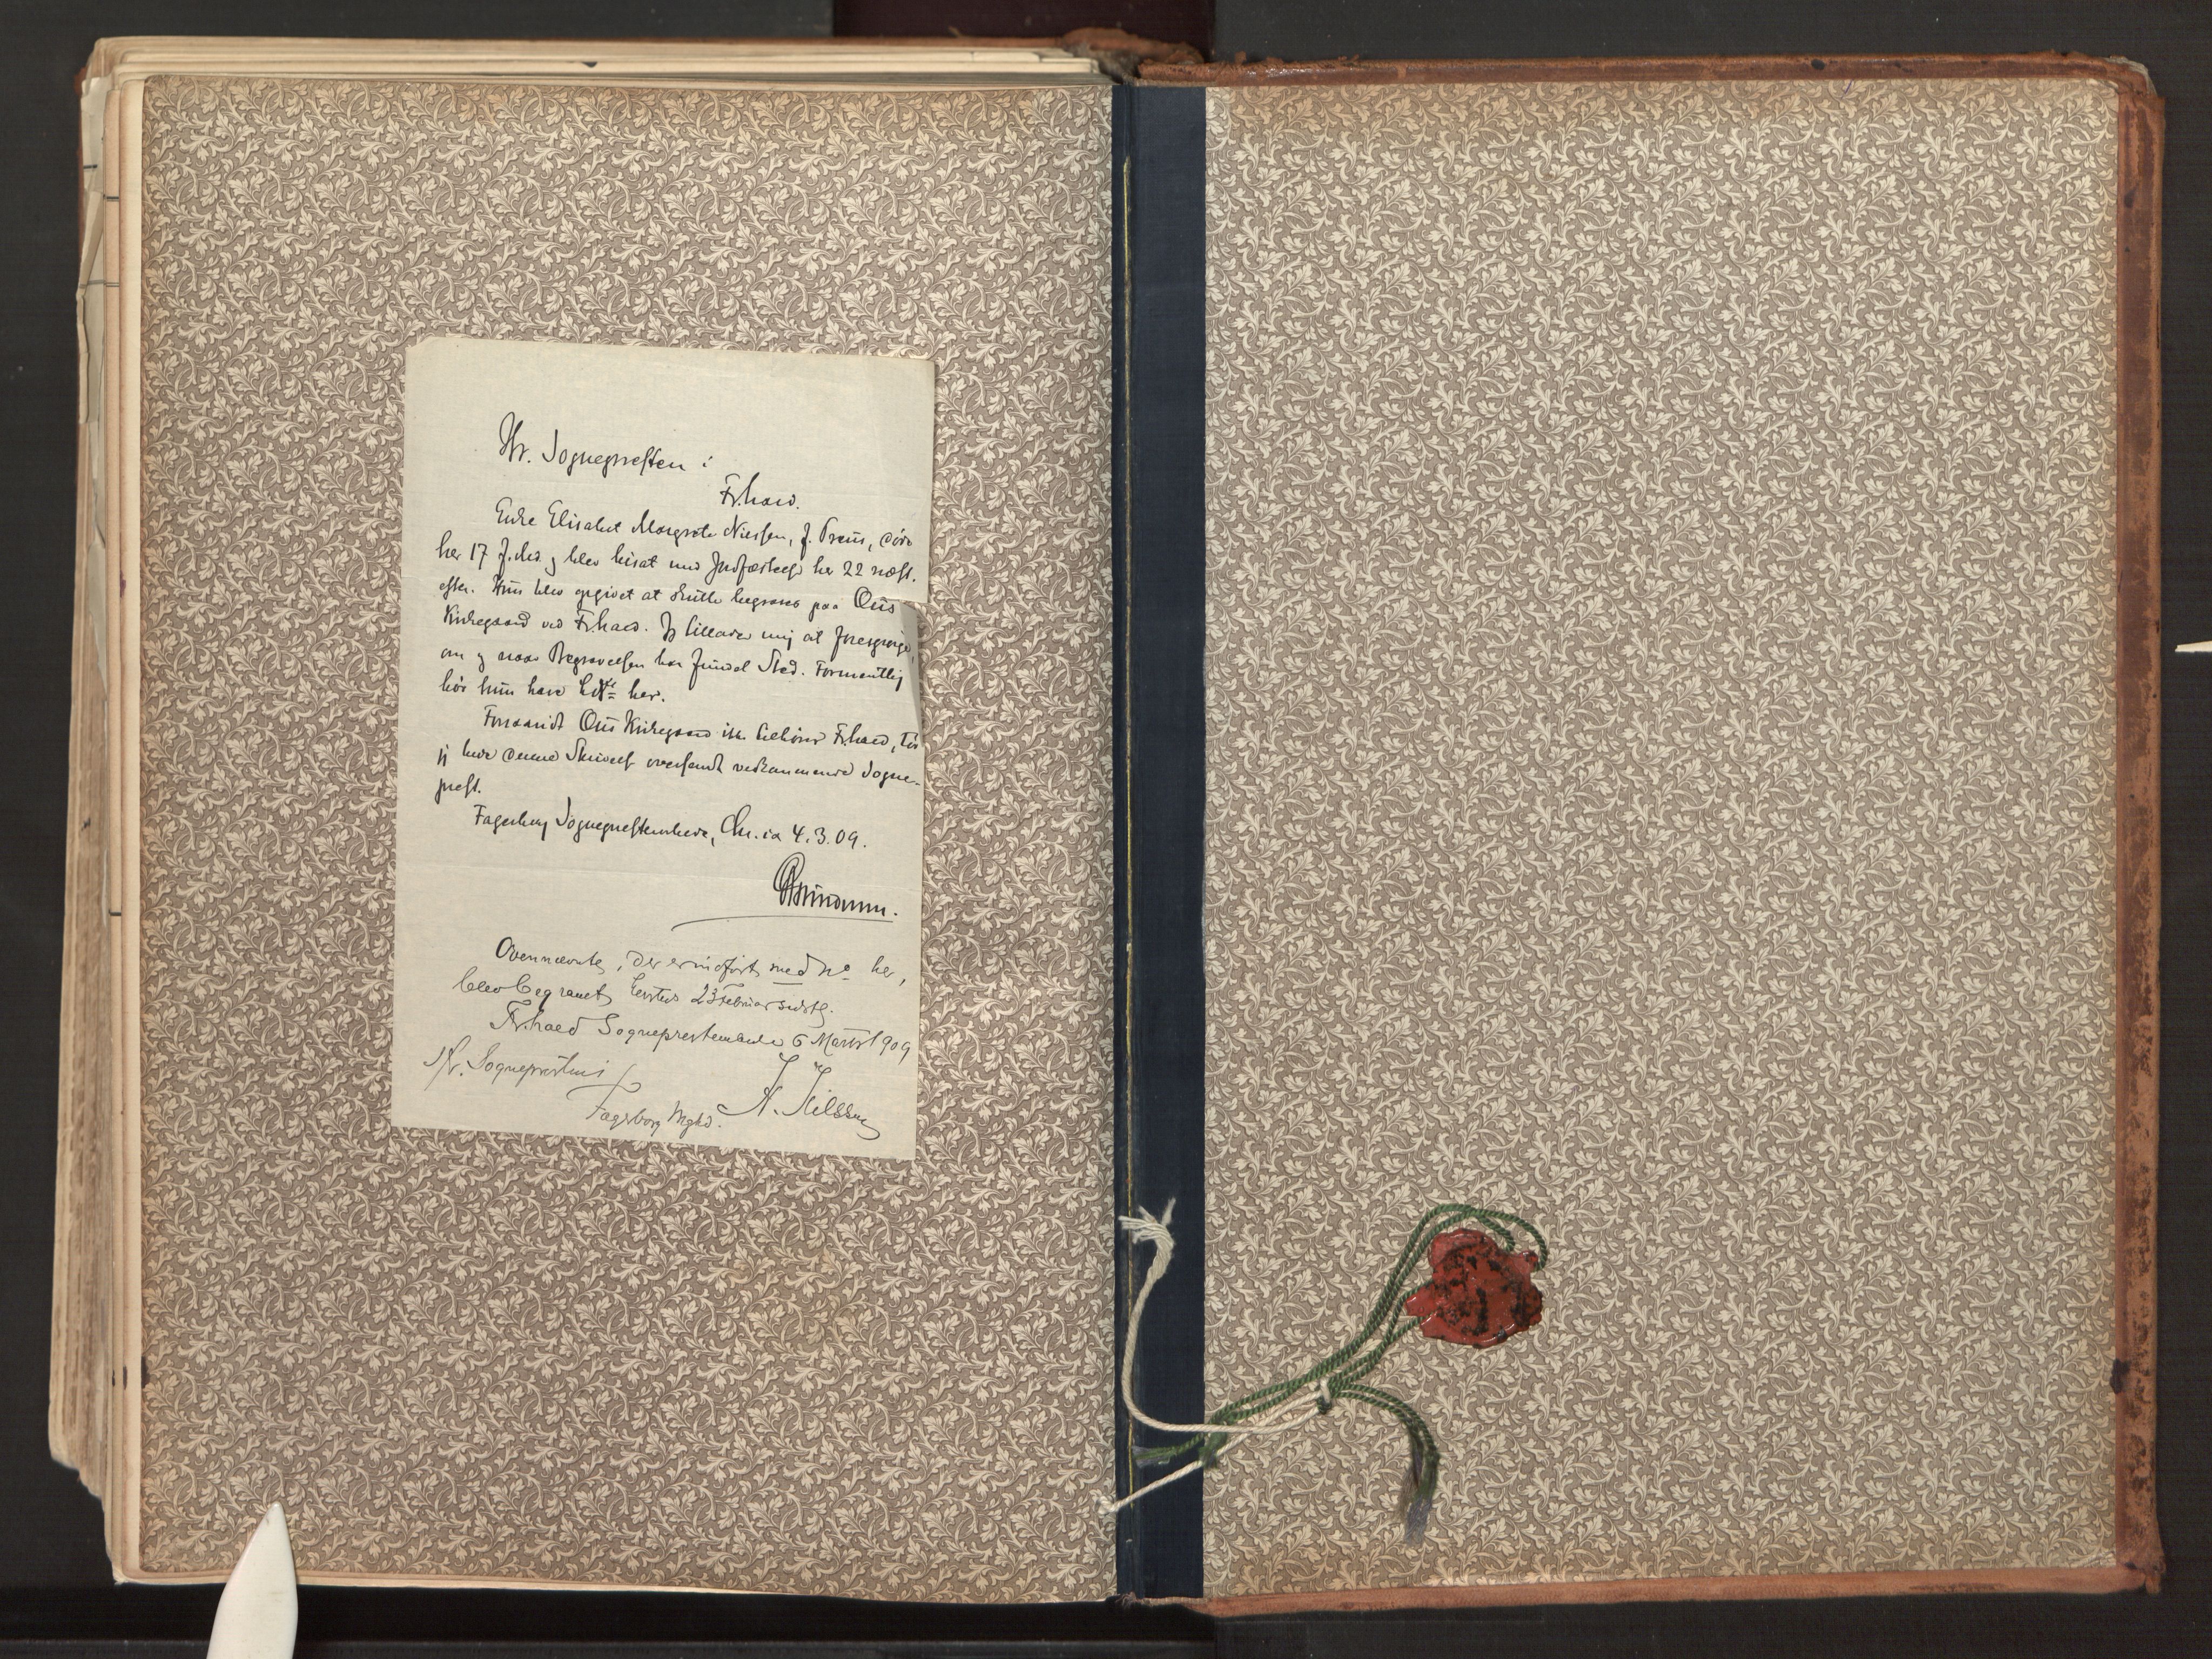 Hr. Sognepresten i
Fr.hald.
Enke Elisabet Margrete Nielsen, f. Preus, døde
her 17 f. Md. og blev bisat med Jordfæstelse her 22 næst-
efter. Hun blev opgivet at skulle begraves paa Os
Kirkegaard ved Fr.hald. Jeg tillader mig at forespørge,
om og naar Begravelsen har fundet Sted. Formentlig
bør hun have her.
Forsaavidt Os Kirkegaard ikke tilhører Fr.hald, tør
jeg bede denne Skrivelse oversendt vedkommende Sogne-
prest.
Fagerborg Sogneprestembede, Chr.ia 4.3.09.
Ovennævnte, der er indført med No her,
blev begravet 23 Februar sidstl.
Fr.hald Sogneprestembede 6 Marts 1909
Hr. Sognepresten i
Fagerborg Mghd. A. Nilssen